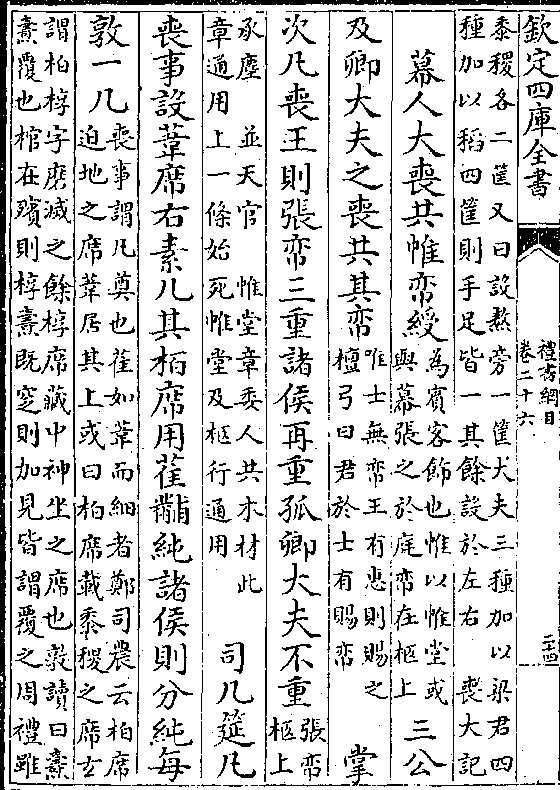 欽定四庫全書
禮書綱目
卷二十六
二十四
黍稷各二筐又曰設熬旁一筐大夫三種加以梁君四
種加以稻四筐則手足皆一其餘設於左右 喪大記
幕人大喪共帷帟綬
為賓客飾也帷以帷堂或
與幕張之於庭帟在柩上
三公
及卿大夫之喪共其帟
唯士無帟王有惠則賜之
檀弓曰君於士有賜帟
掌
次凡喪王則張帟三重諸侯再重孤卿大夫不重
張帟
柩上
承塵 並天官 帷堂章委人共木材此
章通用上一條始死帷堂及柩行通用
司几筵凡
喪事設葦席右素几其栢席用萑黼純諸侯則分純每
敦一几
喪事謂凡奠也萑如葦而細者鄭司農云柏席
迫地之席葦居其上或曰柏席載黍稷之席玄
謂柏椁字磨滅之餘椁席藏中神坐之席也敦讀曰燾
燾覆也棺在殯則椁燾既窆則加見皆謂覆之周禮雖